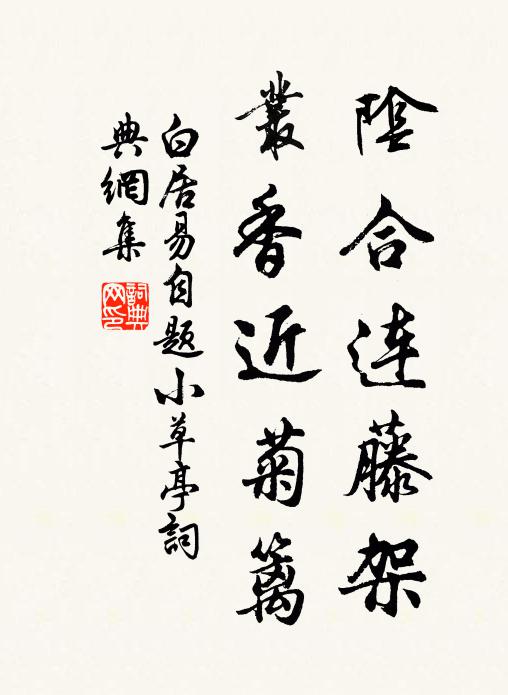 陰合連藤架
叢香近菊籬
白居易自题小草亭詞
典網集
詞典网印